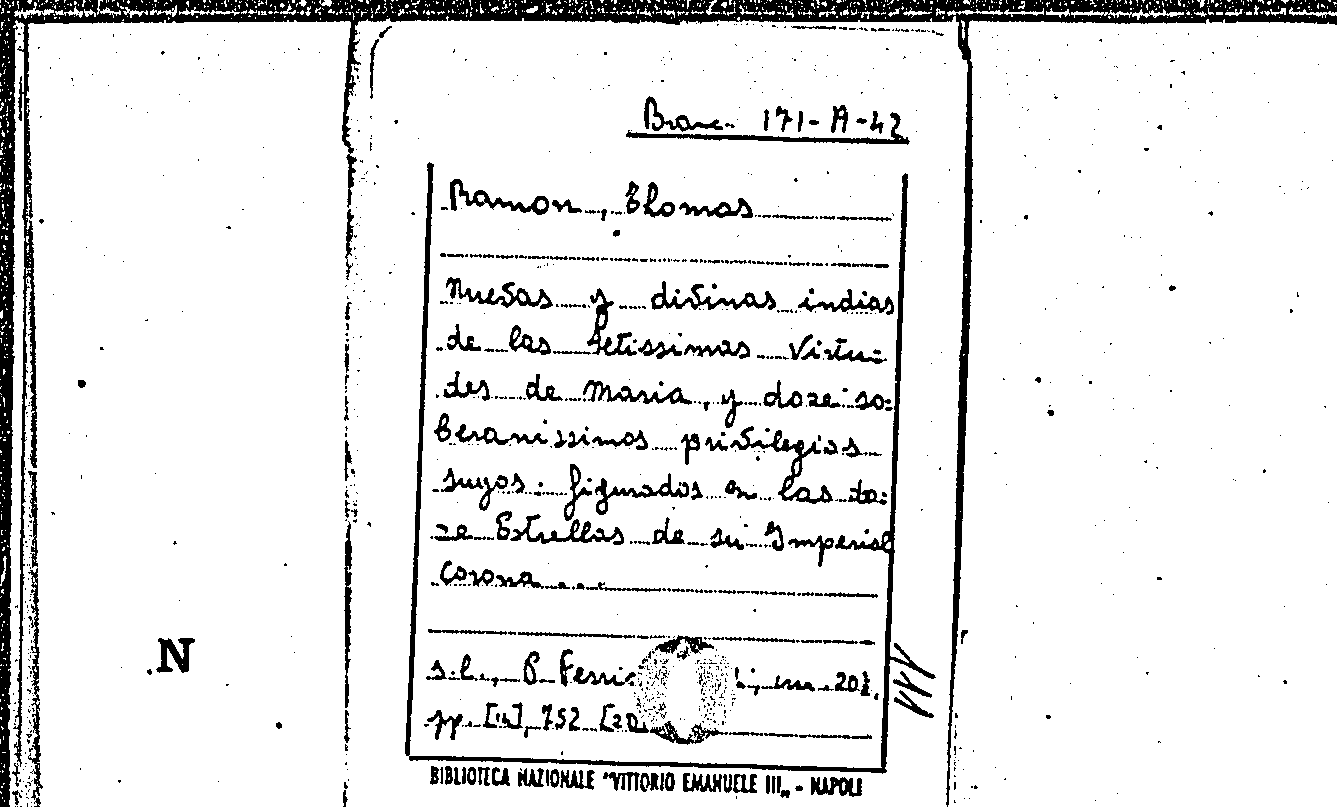 Branc. 171-A-42
Ramon, Thomas
Nuevas y divinas indias
de las setissimas virtu=
des de Maria, y doze so=
beranissimos privilegios
suyos. figurados en las do=
ze Estrellas de su Imperial
Corona...
s.l., P. Ferri
cm. 20½.
pp. [14], 752 [20
N
BIBLIOTECA NAZIONALE "VITTORIO EMANUELE III„ - NAPOLI